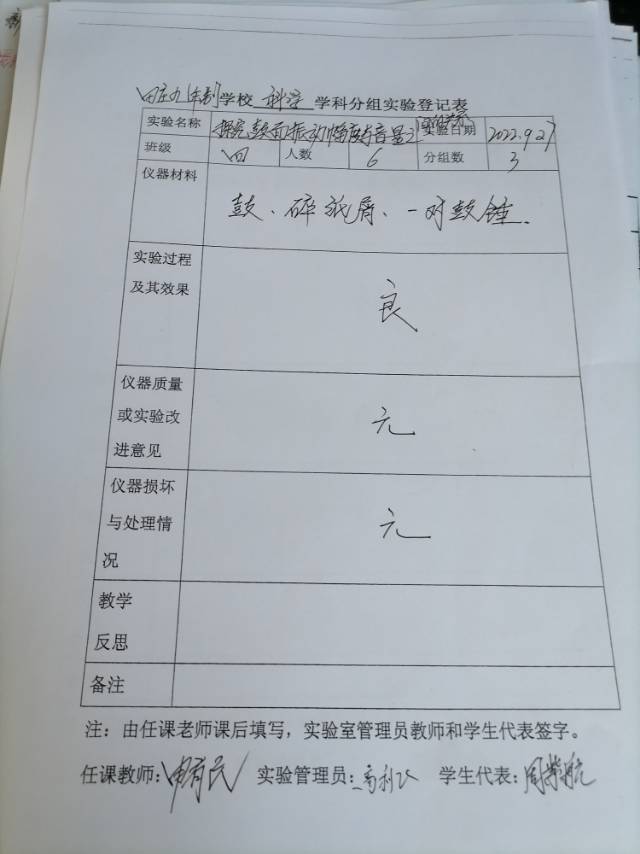 田庄九年制学校 科学 学科分组实验登记表
实验名称 探究鼓面振动幅度与音量之间的关系 实验日期 2022.9.27
班级 四 人数 6 分组数 3
仪器材料 鼓、碎纸屑、一对鼓锤.
实验过程
及其效果 良
仪器质量
或实验改 无
进意见
仪器损坏
与处理情 无
况
教学
反思
备注
注：由任课老师课后填写，实验室管理员教师和学生代表签字。
任课教师： 实验管理员： 学生代表：